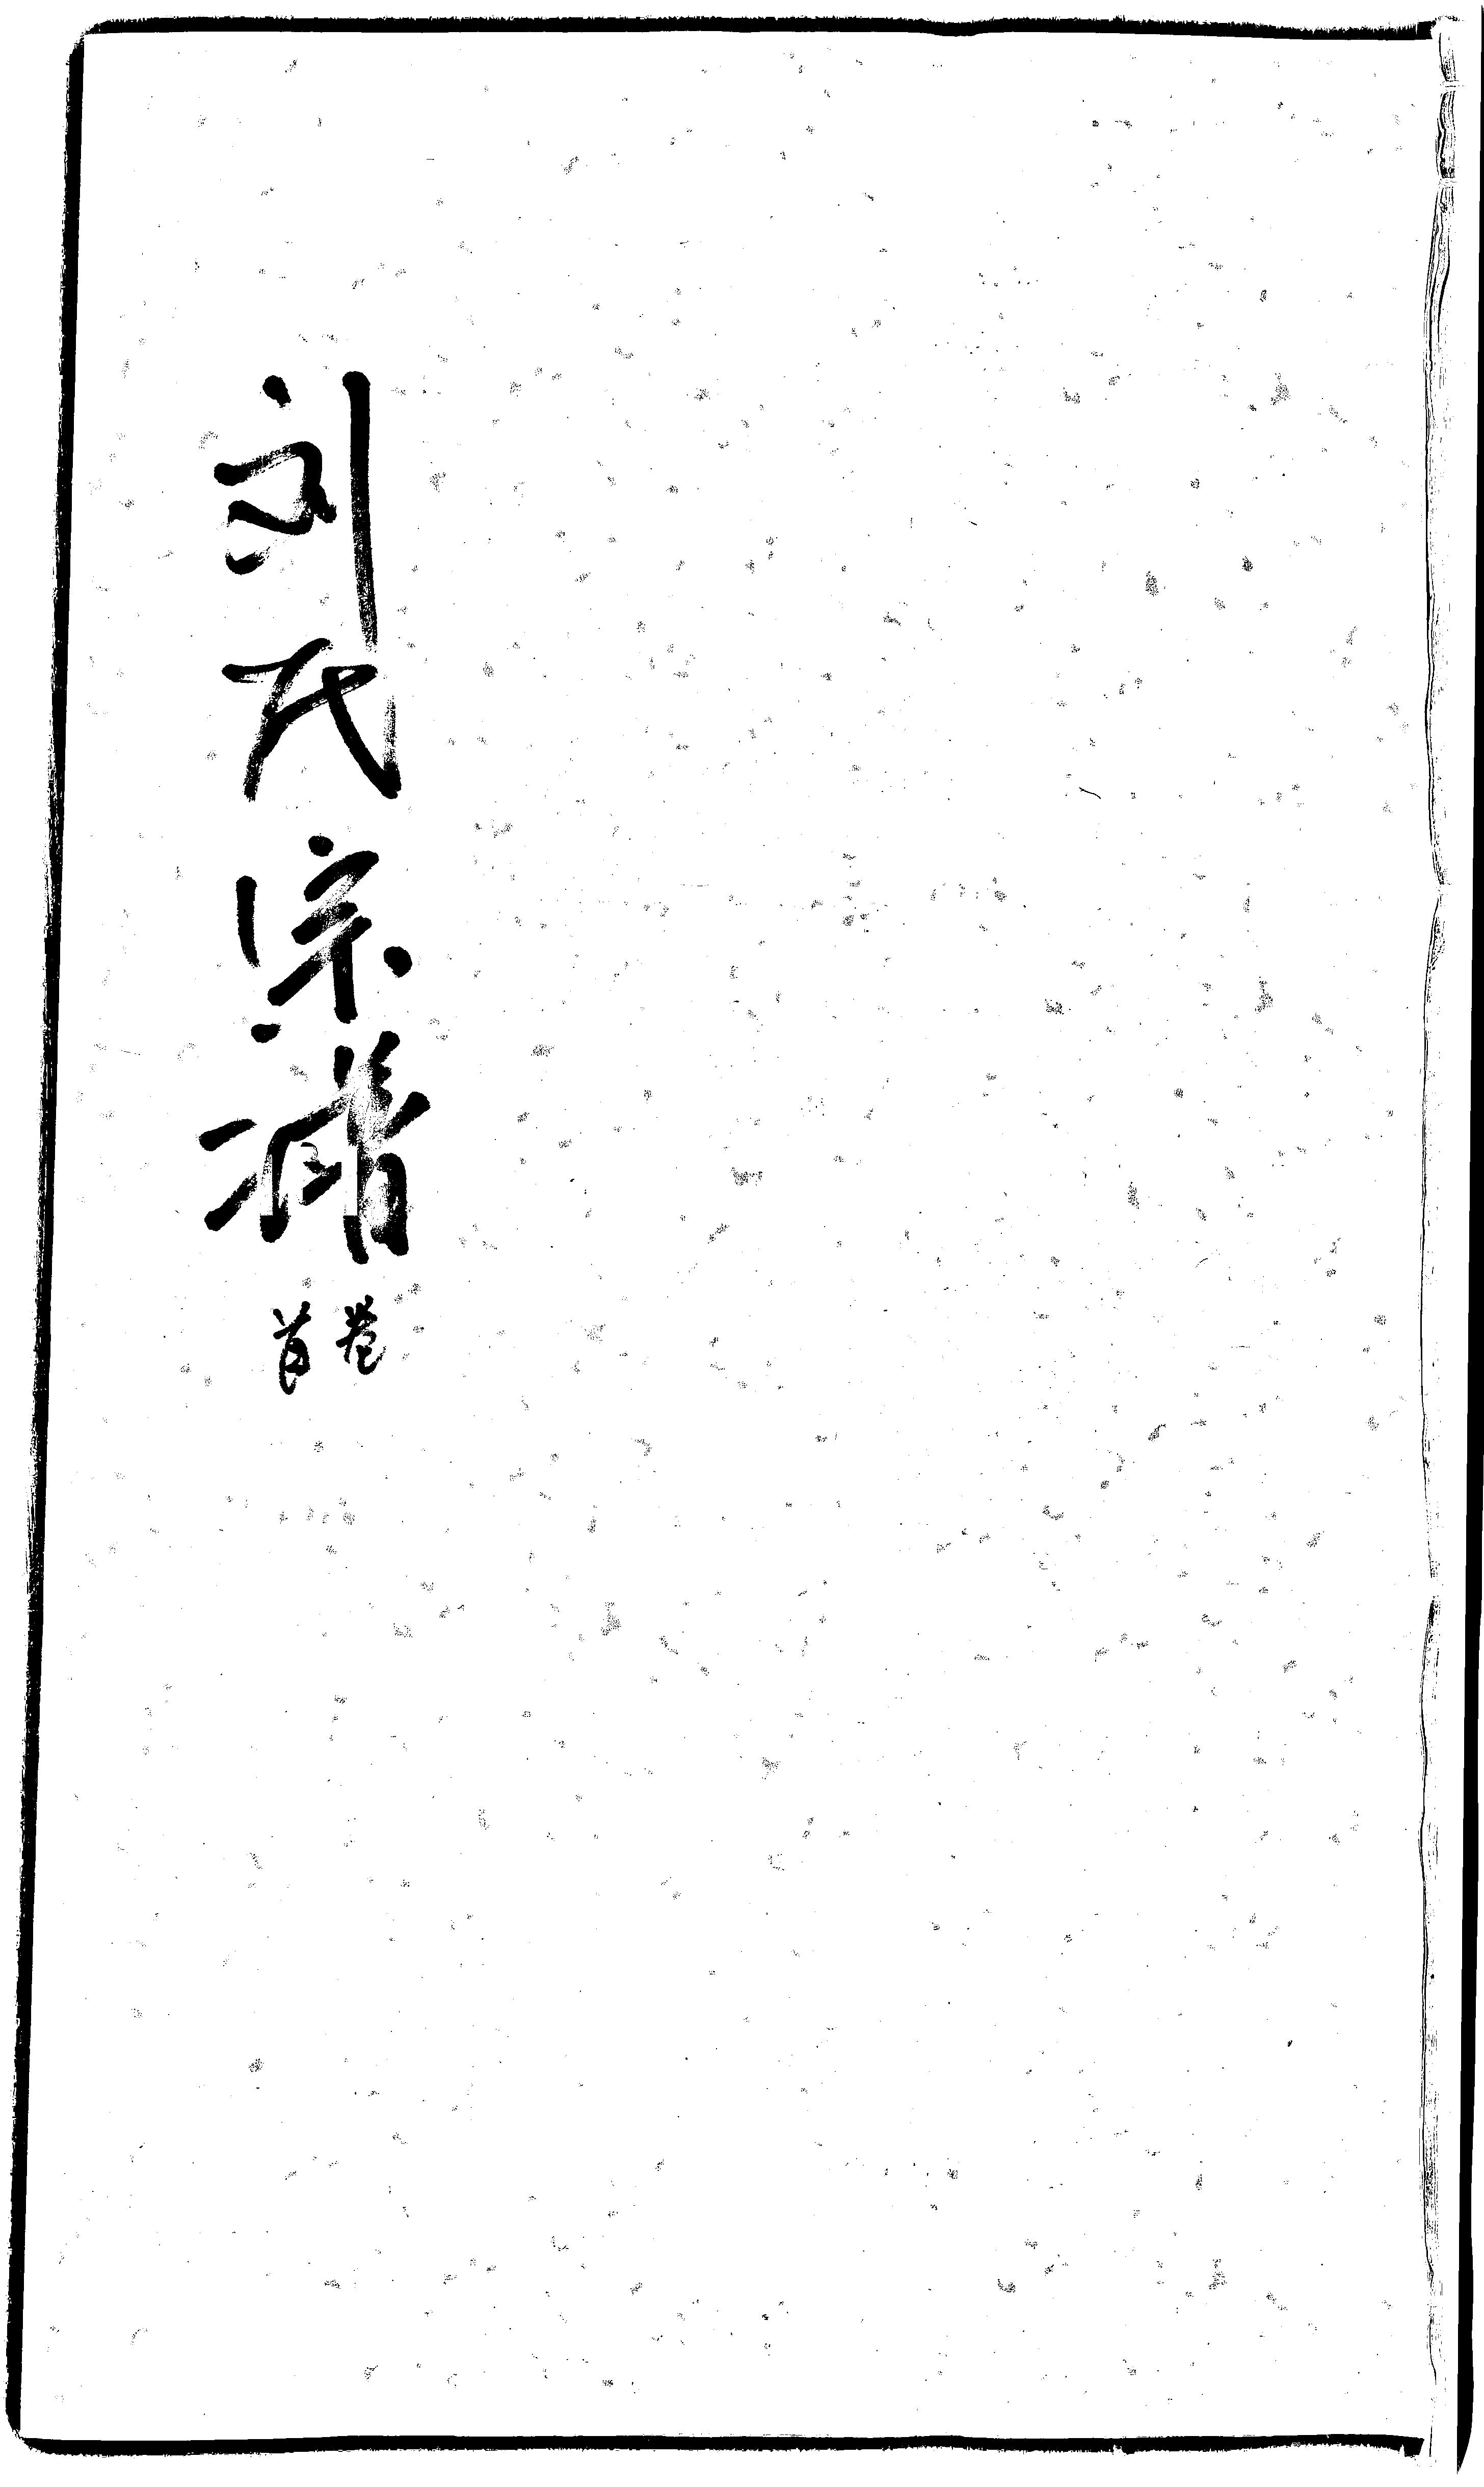 刘氏宗谱
卷
首